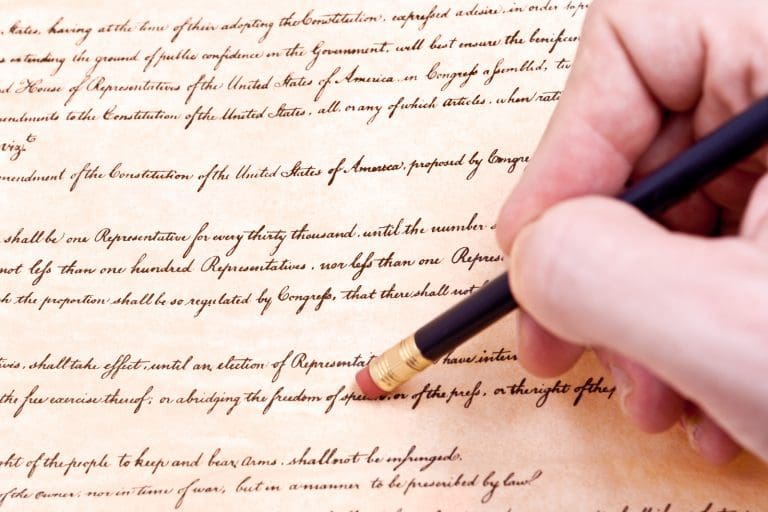 States, having at the time of their adopting the Constitution, expressed a desire, in order to
extending the ground of public confidence in the Government, will best ensure the beneficen
House of Representatives of the United States of America, in Congress assembled,
endments to the Constitution of the United States, all or any of which Articles, when rat
viz.t
mendment of the Constitution of the United States of America, proposed by Congre
shall be one Representative for every thirty thousand, until the number
not less than one hundred Representatives, nor less than one Repres
the proportion shall be so regulated by Congress, that there shall not
shall take effect, until an election of Representat have inter
the free exercise thereof; or abridging the freedom of speech, or of the press, or the right of the
ght of the people to keep and bear Arms, shall not be infringed.
of the Owner, nor in time of war, but in a manner to be prescribed by law.